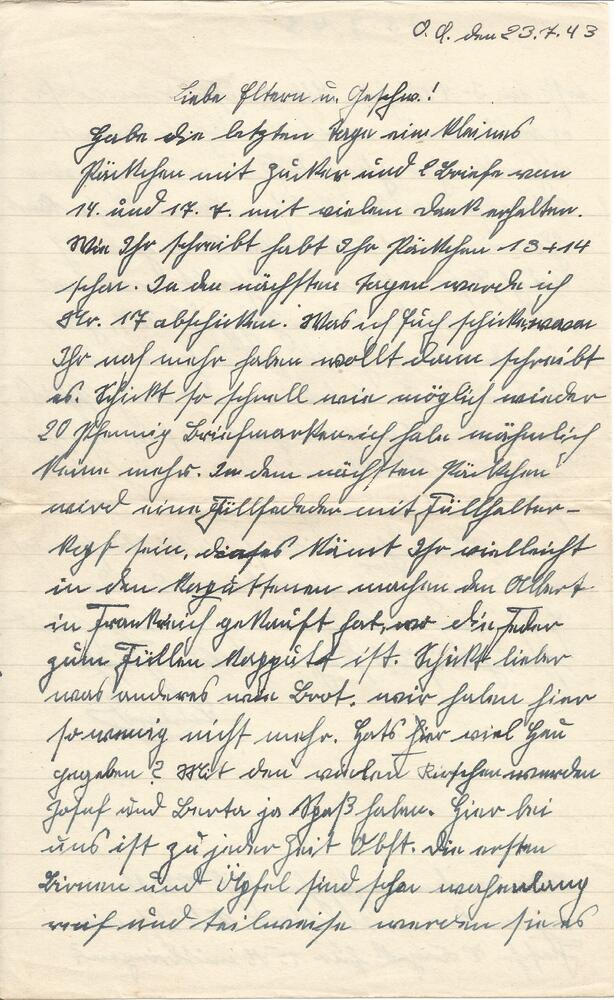 O.U. den 23.7.43
Liebe Eltern u. Geschw.!
Habe die letzten Tage ein kleines
Päckchen mit Zucker und 2 Briefe vom
14. und 17.7. mit vielem Dank erhalten.
Wie Ihr schreibt habt Ihr Päckchen 13+14
schon. In den nächsten Tagen werde ich
Nr. 17 abschicken. Was ich Euch schicke wovon
Ihr noch mehr haben wollt dann schreibt
es. Schickt so schnell wie möglich wieder
20 Pfennig Briefmarken ich habe nähmlich
keine mehr. In dem nächsten Päckchen
wird eine Füllfededer mit Füllhalter-
kopf sein, dieses könnt Ihr vielleicht
in den kaputtenen machen den Albert
in Frankreich gekauft hat, wo die Feder
zum Füllen kapputt ist. Schickt lieber
was anderes wie Brot, wir haben hier
so wenig nicht mehr. Hats hier viel Heu
gegeben? Mit den vielen Kirschen werden
Josef und Berta ja Spaß haben. Hier bei
uns ist zu jeder Zeit Obst. Die ersten
Birnen und Äpfel sind schon wochenlang
reif und teilweise werden sie es